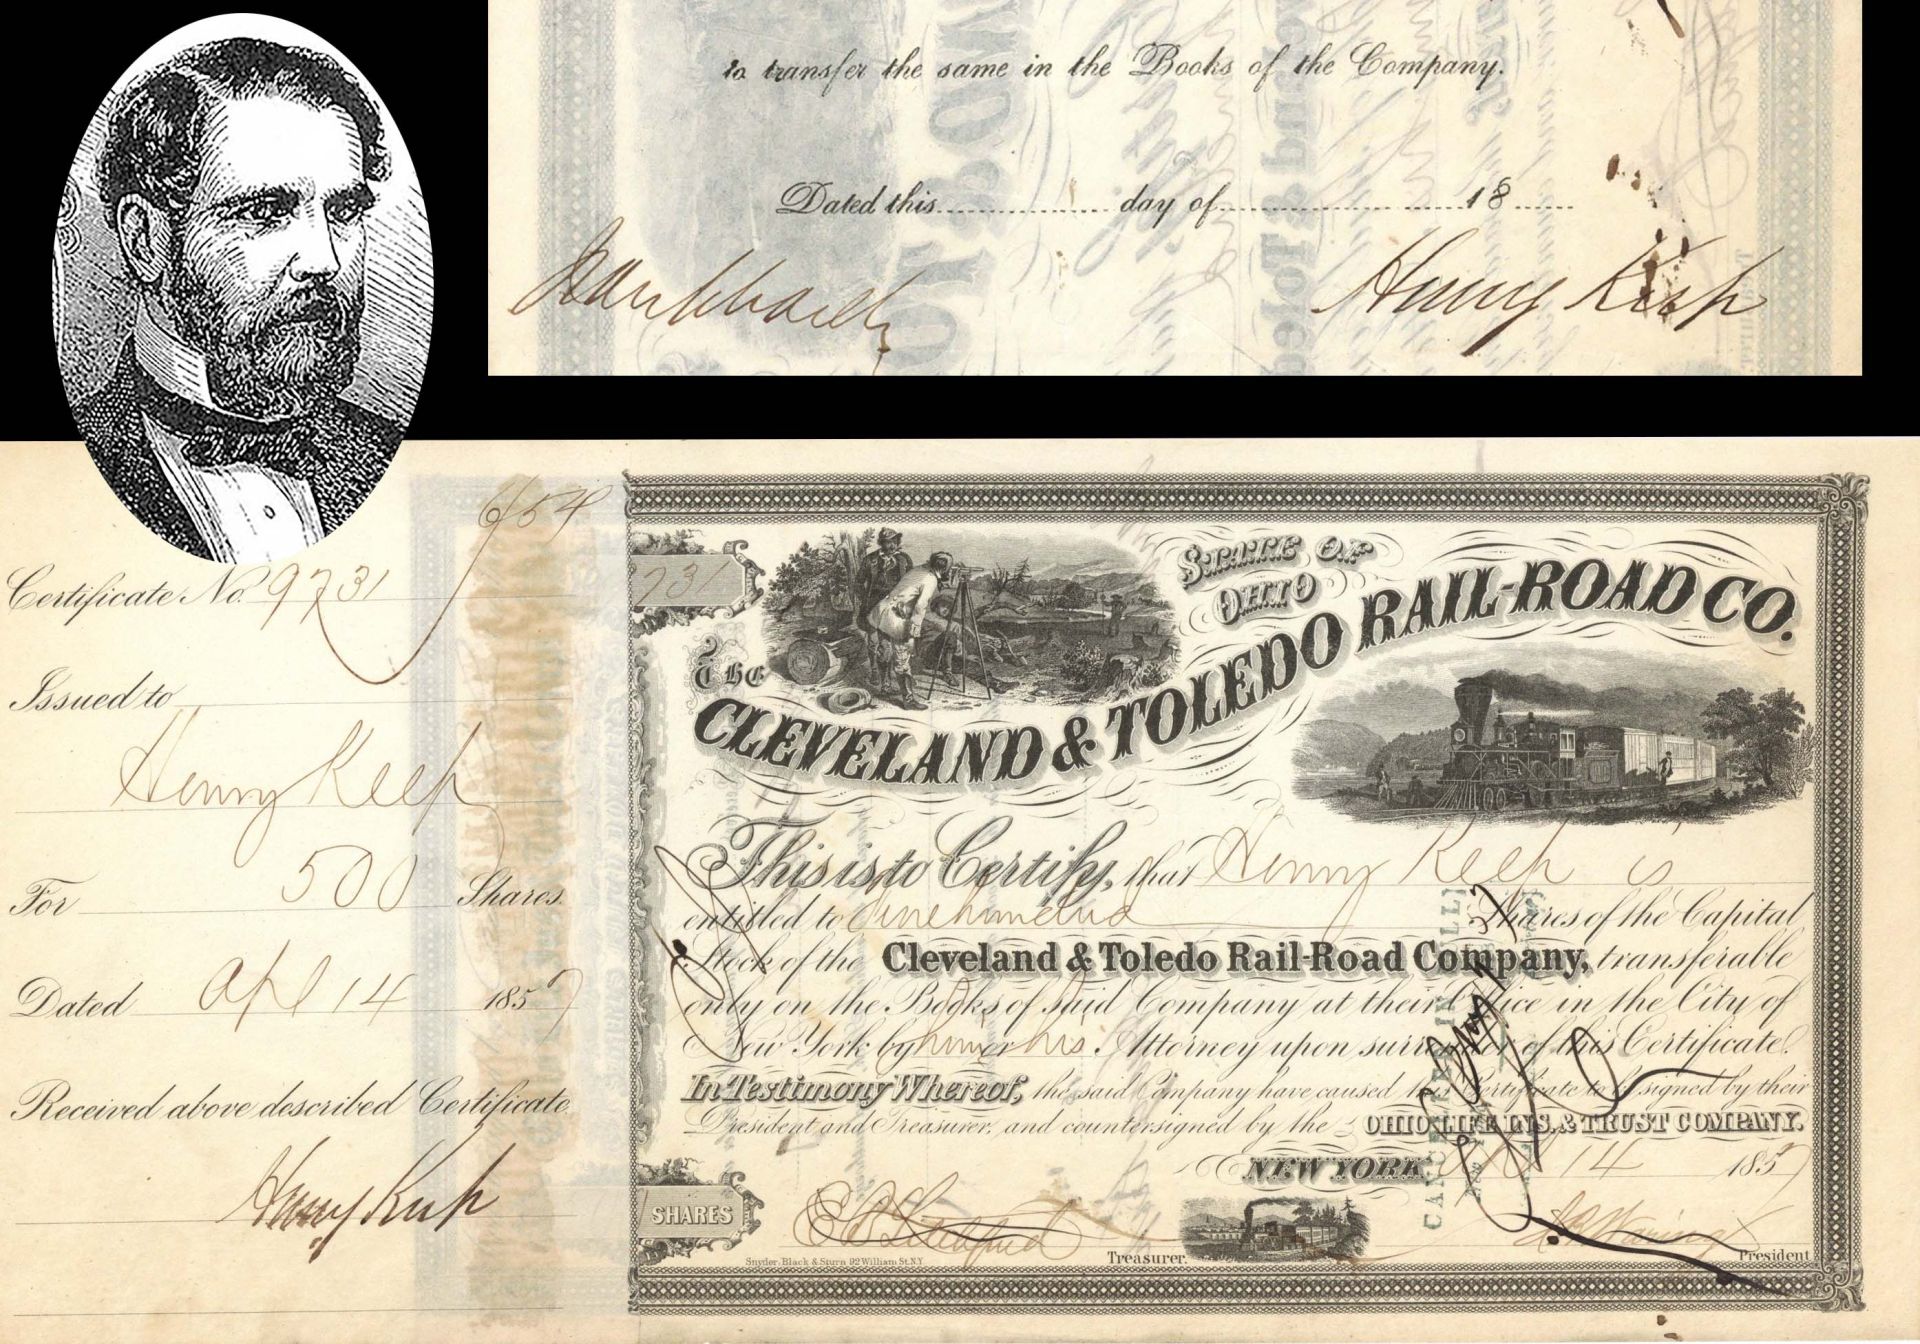 to transfer the same in the Books of the Company.
Dated this day of 18
Henry Keep
654
Certificate No. 9731
Issued to
Henry Keep
For 500 Shares.
Dated Apl 14 1857
Received above described Certificate
Henry Keep
731
STATE OF
OHIO
The
CLEVELAND & TOLEDO RAIL-ROAD CO.
This is to Certify, that Henry Keep is
entitled to five hundred Shares of the Capital
Stock of the Cleveland & Toledo Rail-Road Company, transferable
only on the Books of said Company at their Office in the City of
New York by him or his Attorney upon surrender of this Certificate.
In Testimony Whereof, the said Company have caused this Certificate to be signed by their
President and Treasurer, and countersigned by the OHIO LIFE INS. & TRUST COMPANY.
NEW YORK, Apl 14 1857
SHARES
Treasurer.
President
Snyder, Black & Sturn 92 William St. N.Y.